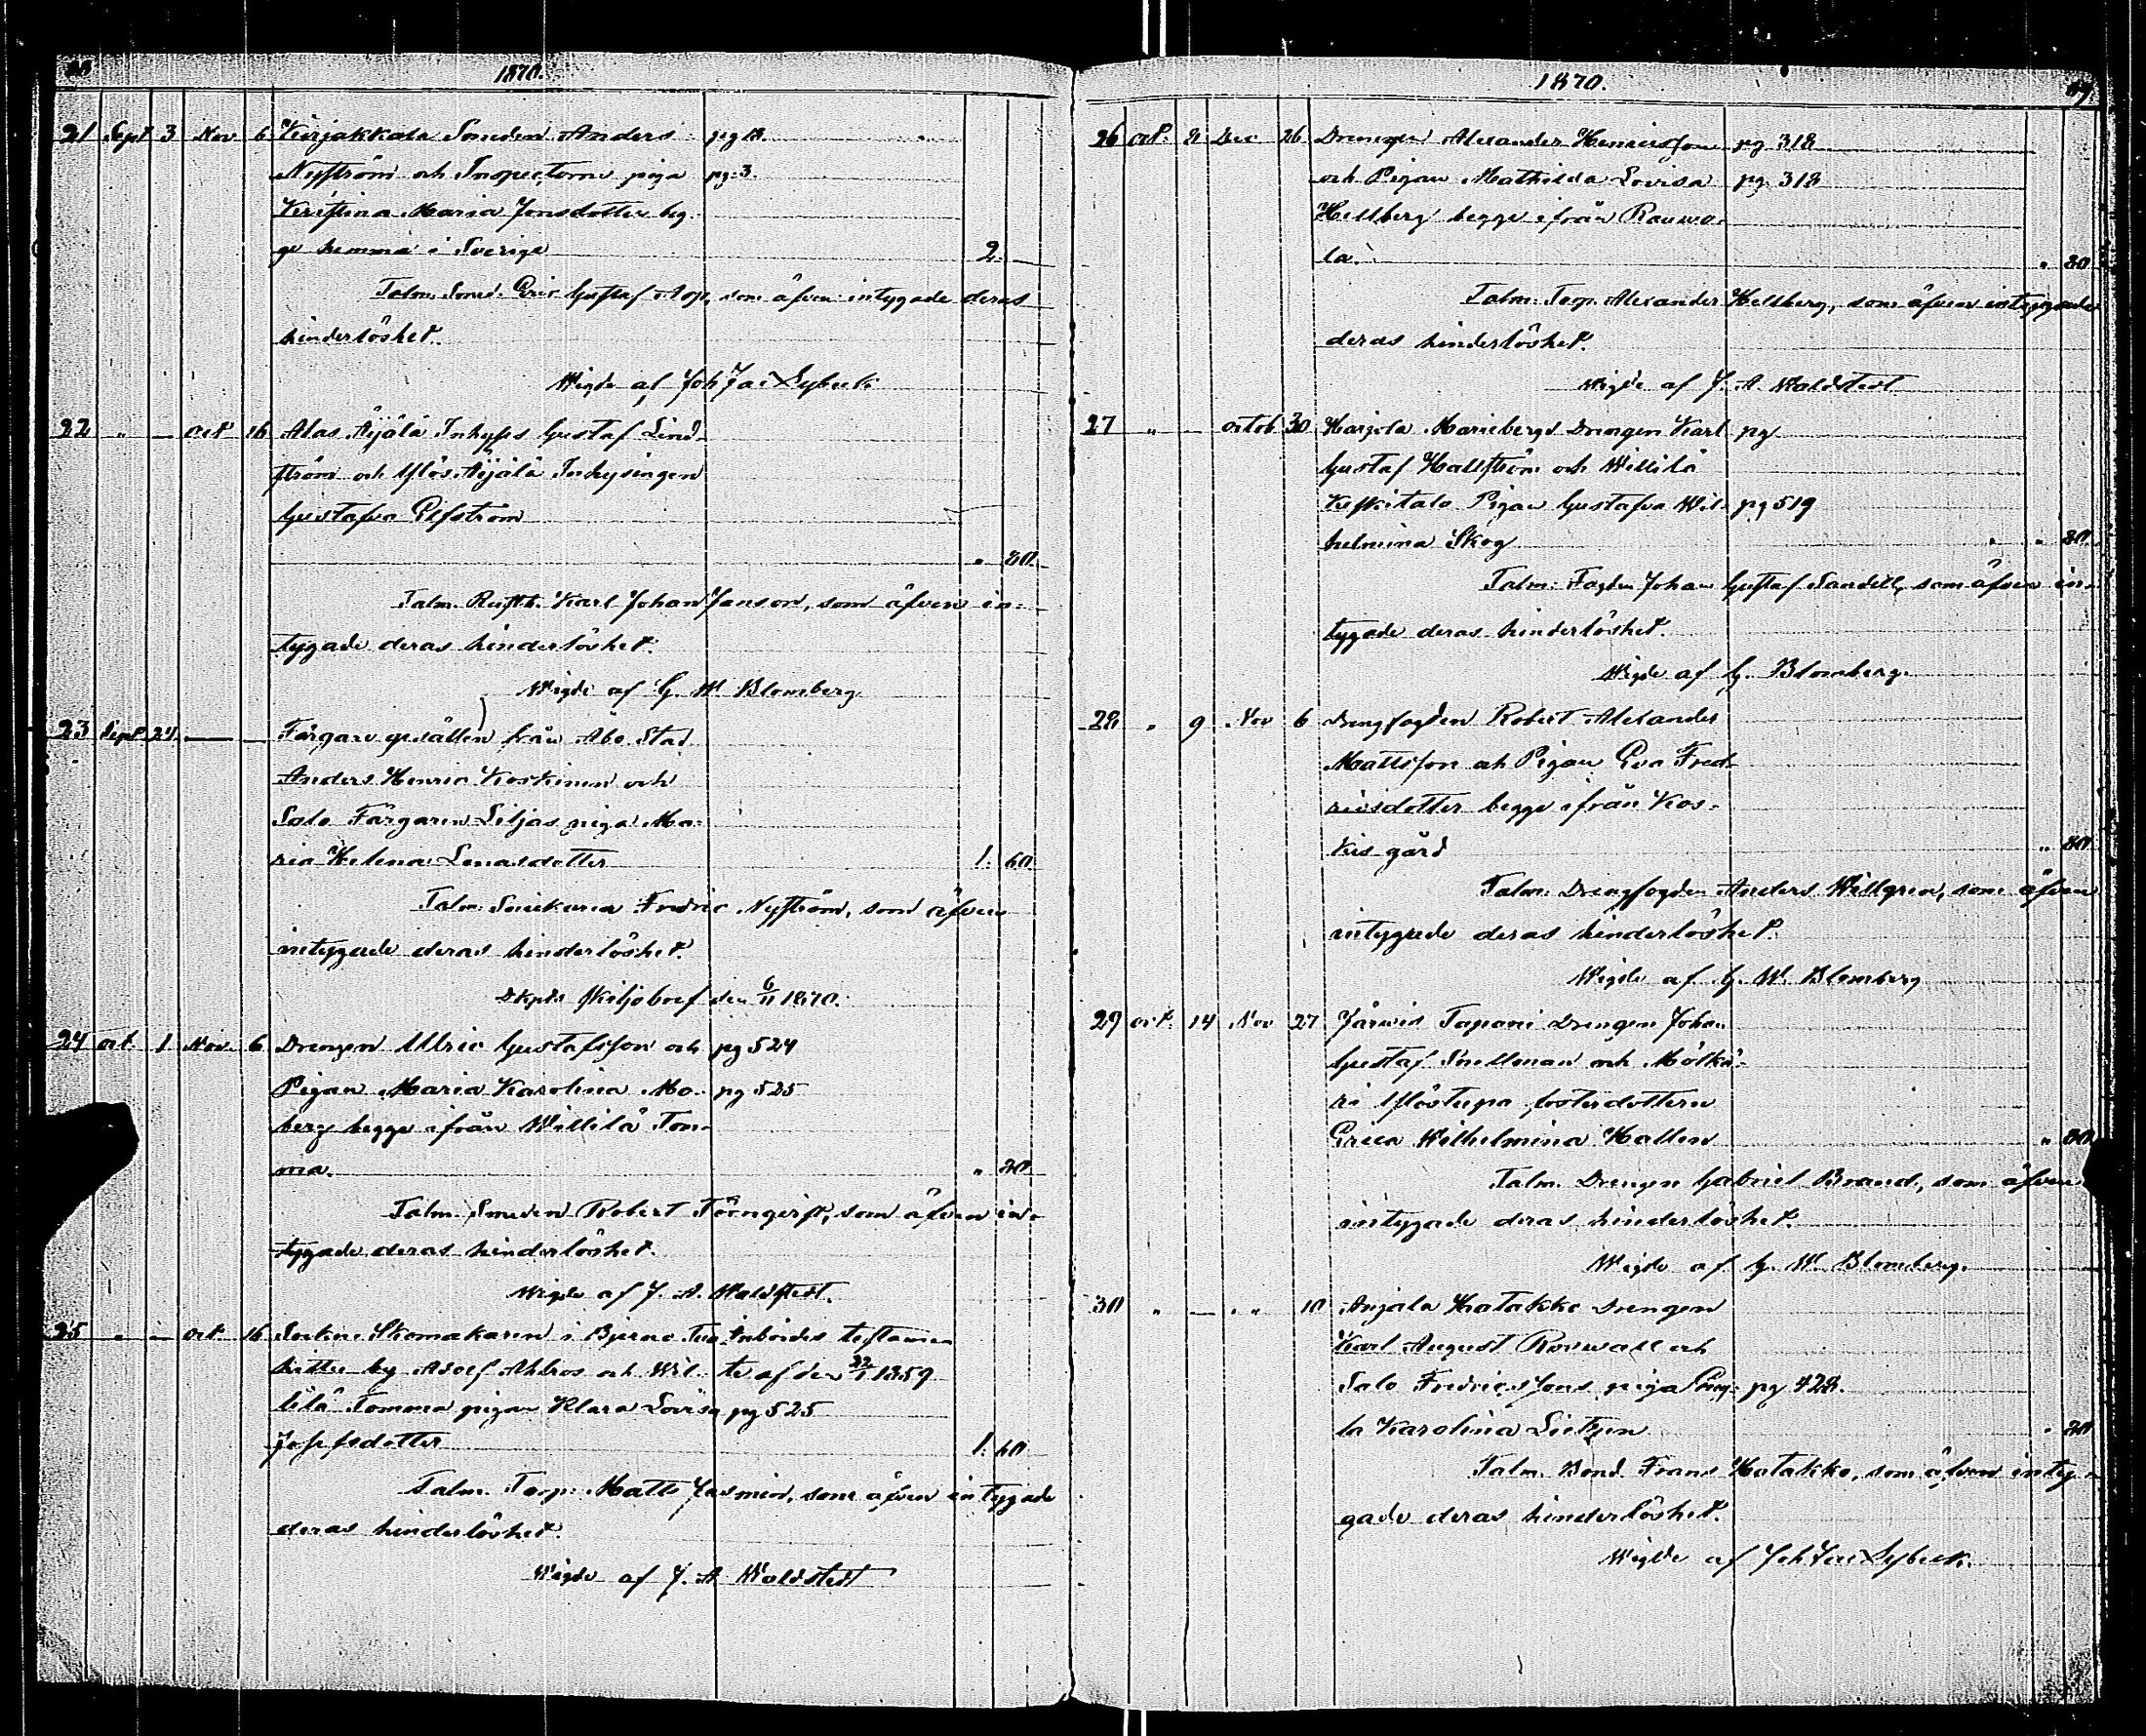 1870.
21 Sept 3 Nov 6 Kirjakkala Smeden Anders pg 18.
Nyström och Inspectorns piga pg. 3.
Kristina Maria Jonsdotter beg-
ge hemma i Sverige 2.
Talm. Smed. Eric Gustaf Asp, som äfven intygade deras
hinderlöshet.
Wigde af Joh Jac Sybeck
22 " — Oct 16 Alas Äijälä Inhyses Gustaf Lind-
ström och Ylös Äijälä Inhysingen
Gustafva Elfström
" 80.
Talm. Rusth. Karl Johan Janson, som äfven in-
tygade deras hinderlöshet.
Wigde af G. W. Blomberg
23 Sept 24 — Färgare gesällen från Åbo Stad
Anders Henric Koskinen och
Salo Färgaren Liljas piga Ma-
ria Helena Lenasdotter 1. 60.
Talm. Fredric Nyström, som äfven
intygade deras hinderlöshet.
skiljobref den 6/11 1870.
24 oct. 1 Nov. 6 Drengen Ulric Gustafsson och pg 524
Pigan Maria Karolina Mo- pg 525
berg begge ifrån Willilä Tom-
ma. " 80
Talm. Smeden Robert Törnqvist, som äfven in-
tygade deras hinderlöshet.
Wigde af J. A. Waldstedt.
25 " — oct 16 Skomakaren i Bjerno testamen-
by Adolf Ahlros och Wil- te af den 22/1 1859
lilä Tomma pigan Klara Lovisa pg 525
Josefsdotter 1. 60
Talm. Torp. Matts Jasmin, som äfven intygade
deras hinderlöshet.
Wigde af J. A Waldstedt
1870.
26 oct. 2 Dec 26 Drengen Alexander Henricsson pg 318
och Pigan Mathilda Lovisa pg. 318
Hellberg begge ifrån Rauwo-
la. " 80
Talm: Torp. Alexander Hellberg, som äfven intygade
deras hinderlöshet.
Wigde af J. A. Waldstedt
27 " — octob 30 Harjola Mariebergs Drengen Karl pg
Gustaf Hallström och Willilä
Keskitalo Pigan Gustafva Wil- pg 519
helmina Skog " " 80.
Talm: Fogden Johan Gustaf Sandell, som äfven in-
tygade deras hinderlöshet.
Wigde af G. Blomberg.
28 " 9 Nov 6 Drengfogden Robert Alexander
Mattsson och Pigan Eva Fred-
ricsdotter begge ifrån Kos-
kis gård " 80
Talm: Drengfogden Anders Willgren, som äfven
intygade deras hinderlöshet.
Wigde af G. W. Blomberg
29 oct. 14 Nov 27 Järwis Tapani Drengen Johan
Gustaf Snellman och Mölkä-
ri Ylöstupa fosterdottern
Erica Wilhelmina Hallen " 80
Talm. Drengen Gabriel Brand, som äfven
intygade deras hinderlöshet.
Wigde af G. W. Blomberg.
30 " — " " 10 Anjala Hatakko Drengen
Karl August Roswall och
Salo Fredricssons piga Eng- pg 428.
la Karolina " 80
Talm. Bond. Frans Hatakko, som äfven inty-
gade deras hinderlöshet.
Wigde af Joh Jac Sybeck.